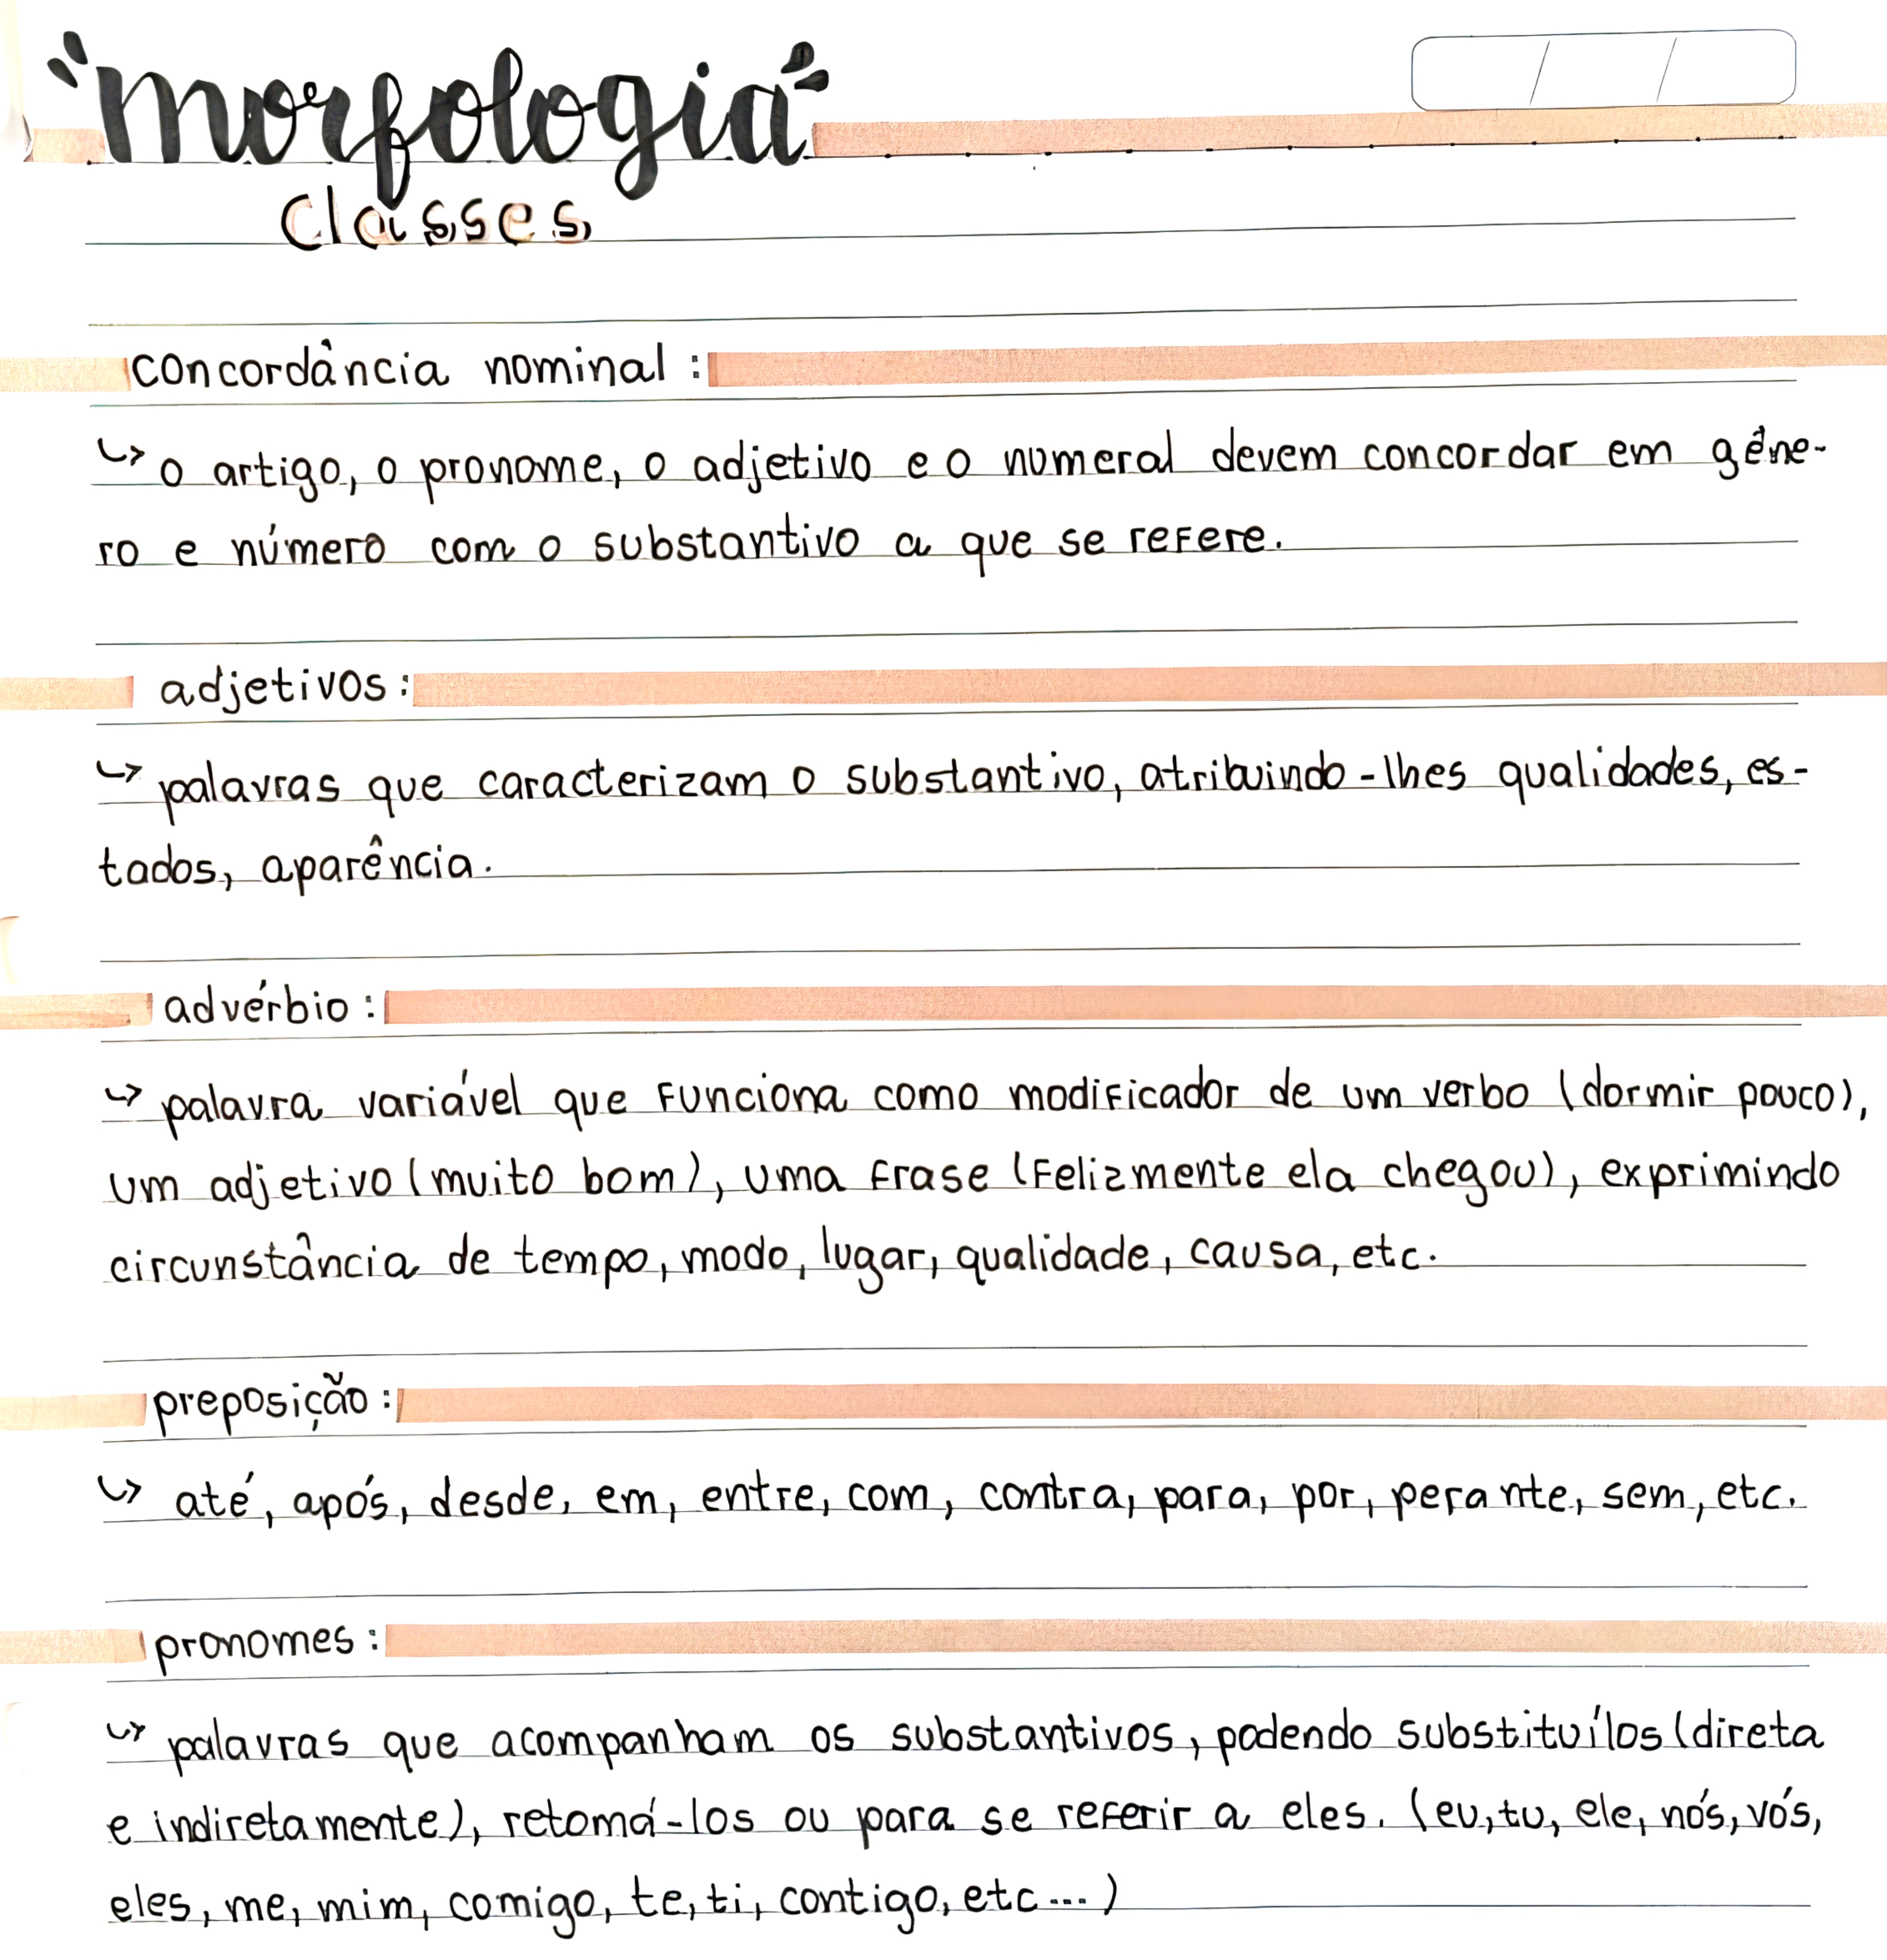 morfologia
Classes
concordância nominal:
↳ o artigo, o pronome, o adjetivo e o numeral devem concordar em gêne-
ro e número com o substantivo a que se refere.
adjetivos:
↳ palavras que caracterizam o substantivo, atribuindo-lhes qualidades, es-
tados, aparência.
advérbio:
↳ palavra variável que funciona como modificador de um verbo (dormir pouco),
um adjetivo (muito bom), uma frase (felizmente ela chegou), exprimindo
circunstância de tempo, modo, lugar, qualidade, causa, etc.
preposição:
↳ até, após, desde, em, entre, com, contra, para, por, perante, sem, etc.
pronomes:
↳ palavras que acompanham os substantivos, podendo substituílos (direta
e indiretamente), retomá-los ou para se referir a eles. (eu, tu, ele, nós, vós,
eles, me, mim, comigo, te, ti, contigo, etc...)